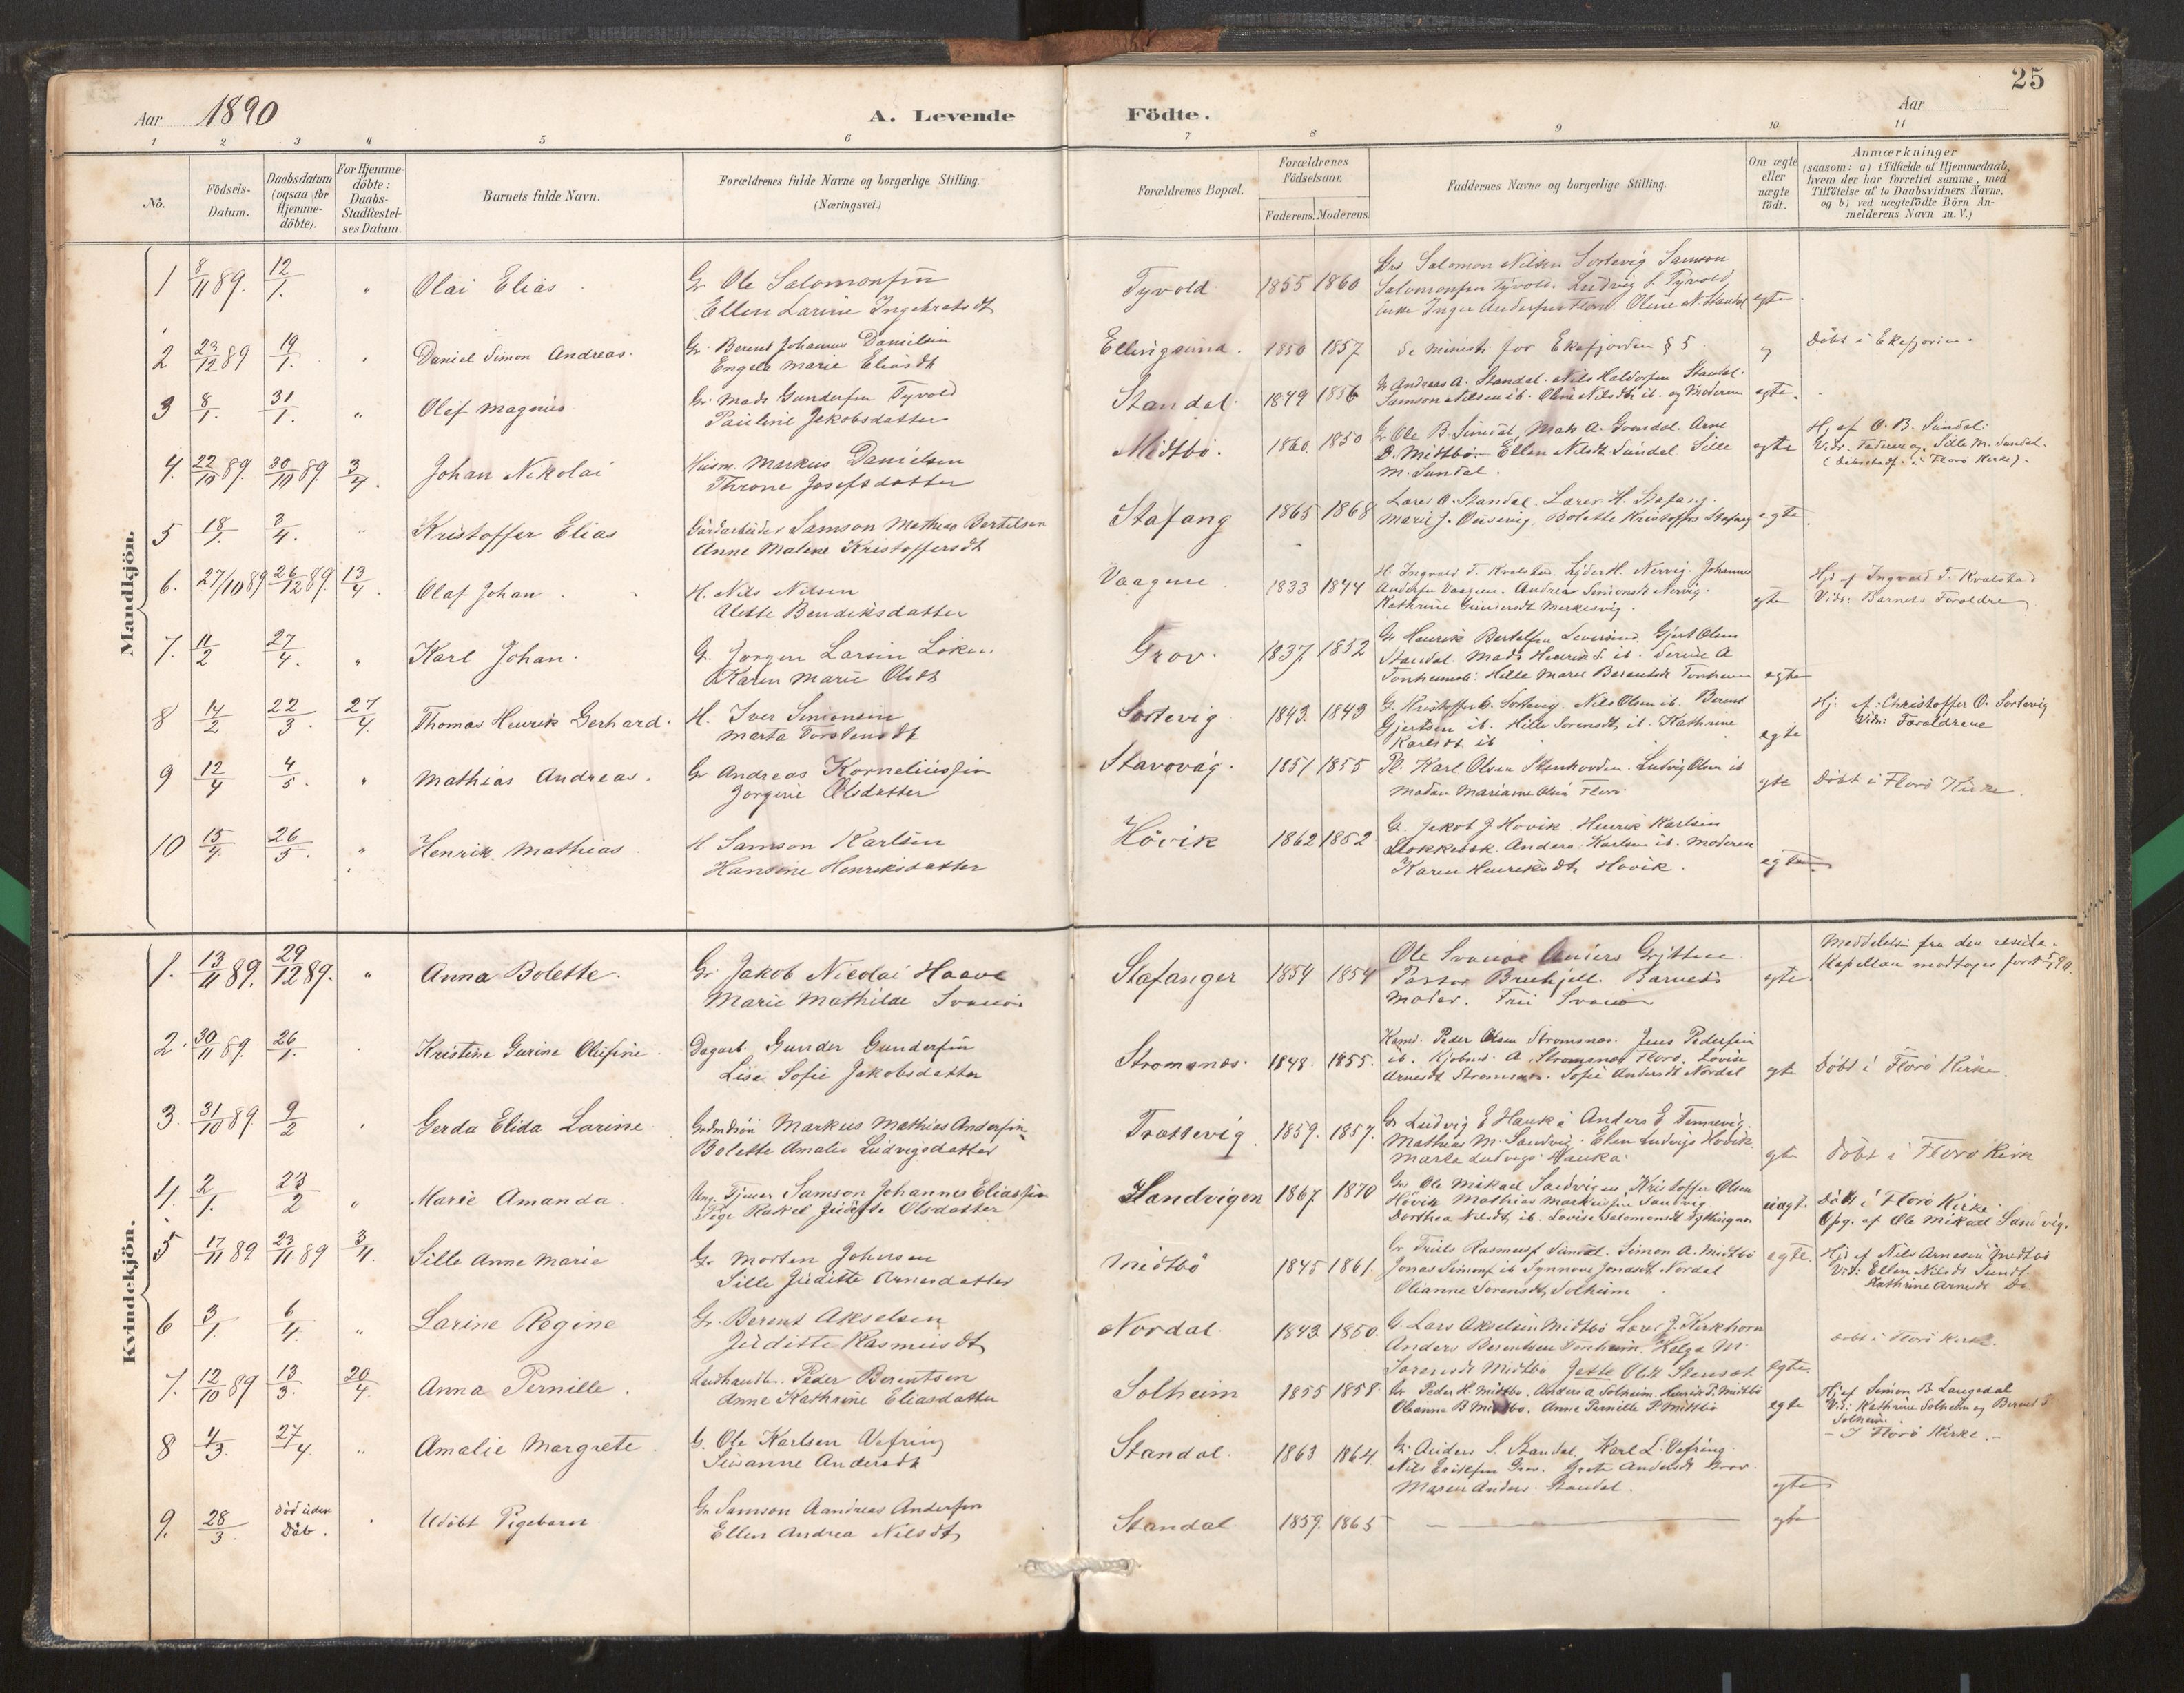 25
Aar 1890
A. Levende
Födte.
Aar
1 2 3 4 5 6 7 8 9 10 11
No.
Födsels-Datum.
Daabsdatum (ogsaa for Hjemme-döbte).
For Hjemme-döbte: Daabs-Stadfæstel-ses Datum.
Barnets fulde Navn.
Forældrenes fulde Navne og borgerlige Stilling. (Næringsvei.)
Forældrenes Bopæl.
Forældrenes Födselsaar.
Faderens. Moderens.
Faddernes Navne og borgerlige Stilling.
Om ægte eller uægte født.
Anmærkninger
(saasom: a) i Tilfælde af Hjemmedaab,
hvem der har forrettet samme, med
Tilföielse af to Daabsvidners Navne,
og b) ved uægtefödte Börn An-
melderens Navn m. V.)
Mandkjön.
1 8/11 89. 12/1. " Olai Elias
Gr. Ole Salomonsen
Ellen Larine Ingebretsdt
Tyvold 1855 1860
Salomon Nilsen Sortevig Samson
Salomonsen Tyvold. Ludvig S. Tyvold
Enke Inger Oline N. Standal egte
2 23/12 89 19/1. " Daniel Simon Andreas.
Gr. Berent Johannes Danielsen
Engele Marie Eliasdt
Ellingsund. 1850 1857
Se Ministr. for Ekefjorden § 5
Döbt i Ekefjorden.
3 8/1. 31/1. " Olif Magnus
Gr. Mads Gundersen Tyvold
Pauline Jakobsdatter
Standal. 1849 1856
Gr. Andreas A. Standal. Nils Haldorsen Standal.
Samson Nilsen ib. Oline Nilsdt. ib. og Moderen egte.
4. 22/10 89. 30/11 89. 3/4. Johan Nikolai
Husm. Markus Danielsen
Throne Josefsdatter
Midtbö. 1860. 1850
Gr. Ole B. Sundal, Mats A. Grondal. Arne
D. Midtbö. Ellen Nilsdt Sundal Sille
M. Sundal. egte
Hj. af O. B. Sundal.
Vidr. Faderen og Sille M. Sundal.
(Dåbsstadf. i Florö Kirke).
5 18/1. 3/4. " Kristoffer Elias
Gårdarbeider Samson Mathias Bertelsen
Anne Malene Kristoffersdt
Stafang 1865 1868
Lares O. Standal. Lares H. Stafang.
Marie J. Bolette Kristoffers Stafang egte.
6. 27/10 89 26/12 89. 13/4. Olaf Johan
H. Nils Nilsen
Alette Bendiksdatter
Vaagene 1833 1844
H. Ingvald T. Kvalstad. Lyder H. Nervig. Johannes
Andersen Vaagene. Andrea Simonsdt Nervig.
Kathrine Gundersdt egte
Hjd af Ingvald T. Kvalstad
Vidr: Barnets Foraldre
7. 11/2 27/4. " Karl Johan.
G. Jorgen Larsen Löken
Karen Marie Olsdt
Grov. 1837 1852
Gr Henrik Bertelsen Leversund. Gjert Olsen
Standal. Mads Henrik S. ib. Serine A
Tonheimsli. Hille Marie Berentsdt Tonheim egte
8 14/2 22/3. 27/4. Thomas Henrik Gerhard.
H. Iver Simonsen
Marta Torstensdt
Sortevig 1843. 1843
G. Kristoffer O. Sortevig. Nils Olsen ib. Berent
Gjertsen ib. Hille Sorensdt. ib. Kathrine
Karlsdt ib egte
Hj: af: Christoffer O. Sortevig
Vidn: Foraldrene
9 12/4 4/5. " Mathias Andreas.
Gr Andreas Korneliussen
Jorgine Olsdatter
Stavovåg. 1851 1855
Karl Olsen Ludvig Olsen ib
Madam Marianne Olsen Florö. egte
Döbt i Florö Kirke.
10 15/4. 26/5. " Henrik Mathias
H. Samson Karlsen
Hansine Henriksdatter
Hövik 1862 1852
G. Jakob J Hovik. Henrik Karlsen
Stokkebök. Anders Karlsen ib. Moderen
Karen Henriksdt, Hovik. egte
Kvindekjön.
1. 13/11 89. 29/12 89. " Anna Bolette.
Gr. Jakob Nicolai Haave
Marie Mathilde Svanöe
Stafanger 1854 1854
Ole Svanöe Anders Gjitten
Pastor Barnets
Moder. Svanöe egte.
Meddelelse fra den reside.
Kapellan modtages först
2. 30/11 89. 26/1. Kristine Gurine Olufine.
Dagarb. Gunder Gundersen
Lise Sofie Jakobsdatter
Stromsnæs. 1848. 1855.
Peder Olsen Stromsnæs. Jens Pedersen
ib. A Stromsnæs Florö. Lovise
Arnesdt Stromsnæs. Sofie Andersdt Nordal egte
Döbt i Florö Kirke.
3. 31/10 89. 9/2 Gerda Elida Larine
Markus Mathias Andersen
Bolette Amalie Ludvigsdatter
Trættevig. 1859. 1857.
Gr Ludvig E Hauka Anders E Tennevig.
Mathias M. Sandvig. Elen Ludvigs Hovik.
Marta Ludvigs Hauka. egte
Döbt i Florö Kirke
4. 2/1. 23/2 " Marie Amanda.
Ung. Tjener Samson Johannes Eliassen
Pige Rakel Juditte Olsdatter
Sandvigen 1867 1870
Gr Ole Mikael Sandvigen, Kristoffer Olsen
Hövik Mathias Markussen Sandvig
Dorthea Nilsdt. ib. Lovise Salomonsdt uægt.
Döbt i Florö Kirke.
Opg. af Ole Mikael Sandvig.
5 17/11 89 23/11 89 3/11. Sille Anne Marie
Gr Morten Johnsen
Sille Juditte Arnesdatter
Midtbö 1845 1861.
Gr Truls Rasmus Sundal. Simon A. Midtbö
Jonas Simons ib Synnove Jonasdt. Nordal
Olianne Sorensdt, Solheim egte.
Hjd af Nils Arnesen Midtbö
Vid: Ellen Nilsdt Sundl.
Kathrine Arnesdt Do
6 3/1. 6/4. " Larine Regine
Gr. Berent Akselsen
Juditte Rasmusdt
Nordal 1843 1850.
G. Lars Akselsen Midtbö Lars J. Kirkhorn
Anders Berentsen Tonheim. Helga M.
Sorensdt Midtbö Jette Olsdt Stensæt egte.
Döbt i Florö Kirke.
7. 12/10 89 13/3. 20/4. Anna Pernille.
Landhandl. Peder Berentsen
Anne Kathrine Eliasdatter
Solheim 1855 1858.
Gr Peder H. Midtbö. Anders A Solheim. Henrik P. Midtbö
Olianne B Midtbö. Anne Pernille P. Midtbö egte
Hj af Simon B. Langedal
Vid: Kathrine Solheim og Bernt S
Solheim.
- I Florö Kirke. -
8 4/3. 27/4. " Amalie Margrete.
G. Ole Karlsen Vefring
Susanne Andersdt
Standal. 1863 1864.
Gr. Anders S. Standal, Karl L. Vefring.
Nils Grov. Grete Andersdt Grov.
Maren Anders Standal. egte
9. 28/3. Död uden Dåb. Udöbt Pigebarn
Gr Samson Aandreas Andersen
Ellen Andrea Nilsdt,
Standal 1859. 1865 — egte